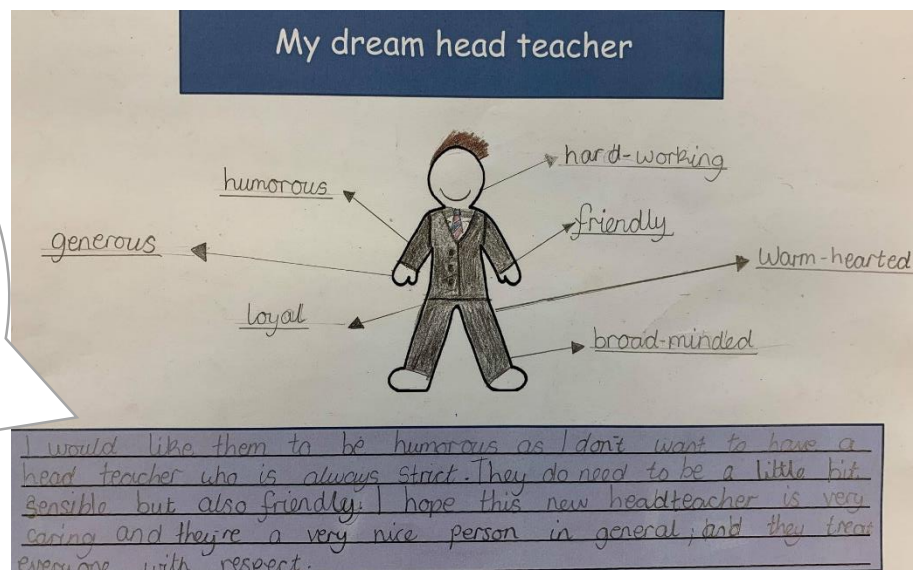 My dream head teacher
hard-working
humorous
friendly
generous
warm-hearted
loyal
broad-minded
I would like them to be humorous as I don't want to have a
head teacher who is always strict. They do need to be a little bit
sensible but also friendly. I hope this new headteacher is very
caring and they're a very nice person in general, and they treat
everyone with respect.